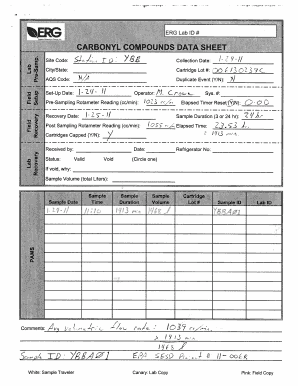 ERG
ERG Lab ID #
CARBONYL COMPOUNDS DATA SHEET
Lab Pre-Samp.
Site Code: ID: YBE Collection Date: 1-24-11
City/State: Cartridge Lot #:
AQS Code: N/A Duplicate Event (Y/N): N
Field Setup
Set-Up Date: 1-24-11 Operator: M. Crowe Sys. #:
Pre-Sampling Rotameter Reading (cc/min): 1023 Elapsed Timer Reset (Y/N): 0:00
Field Recovery
Recovery Date: 1-25-11 Sample Duration (3 or 24 hr): 24 hr
Post Sampling Rotameter Reading (cc/min): 1055 Elapsed Time: 23.53 h
Cartridges Capped (Y/N): Y 1413
Lab Recovery
Received by: Date: Refrigerator No.
Status: Valid Void (Circle one)
If void, why:
Sample Volume (total Liters):
PAMS
Sample Date Sample Time Sample Duration Sample Volume Cartridge Lot # Sample ID Lab ID
1-24-11 1413 1468 YBBAØ1
Comments: Avg volumetric flow rate: 1039
x 1413
1468
Sample ID: YBBAØ1 EPA SESD Project # 11-0068
White: Sample Traveler Canary: Lab Copy Pink: Field Copy